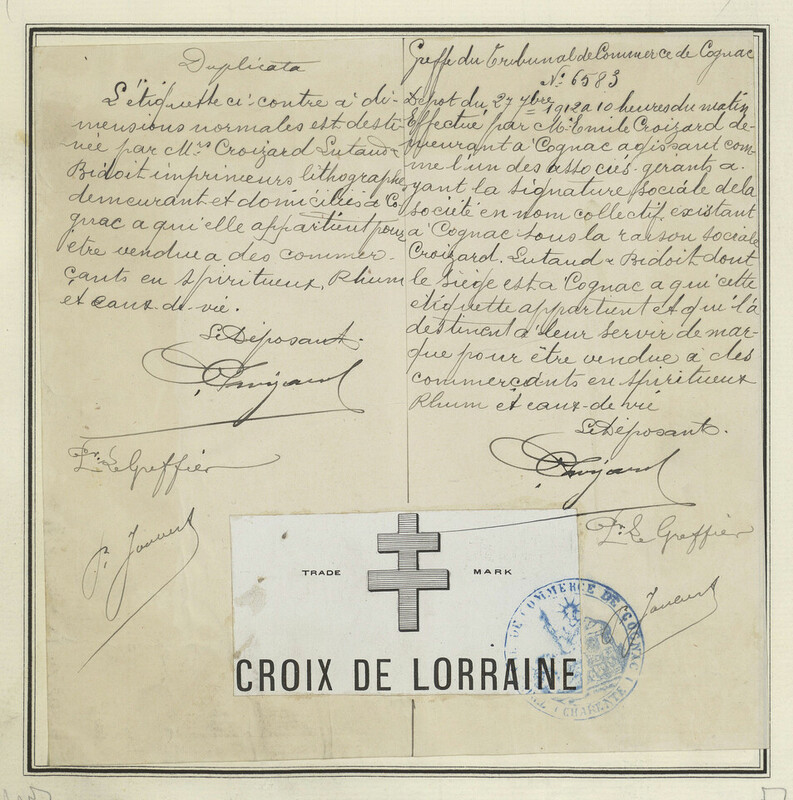 Duplicata
L'étiquette ci-contre a di-
mensions normales est desti-
née par Mrs Croizard Lutaud &
Bidoit imprimeurs lithographes
demeurant et domiciliés à Co-
gnac a qui elle appartient pour
être vendue a des commer-
çants en spiritueux, Rhum
et eaux-de-vie.
Le Déposant.
Croizard
Pr. Le Greffier
P. Jouvert
Greffe du Tribunal de Commerce de Cognac
No. 6583
Dépot du 27 7bre 1912 a 10 heures du matin
Effectué par M. Emile Croizard de-
meurant a Cognac agissant com-
me l'un des associés-gérants a-
yant la signature sociale de la
société en nom collectif existant
a Cognac sous la raison sociale
Croizard. Lutaud & Bidoit dont
le siège est a Cognac a qui cette
étiquette appartient et qui l'a
destinent a leur servir de mar-
que pour être vendue à des
commerçants en spiritueux
Rhum et eaux-de-vie
Le Déposant.
Croizard
Pr. Le Greffier
Jouvert
TRADE MARK
CROIX DE LORRAINE
DE COMMERCE DE COGNAC
(CHARENTE)